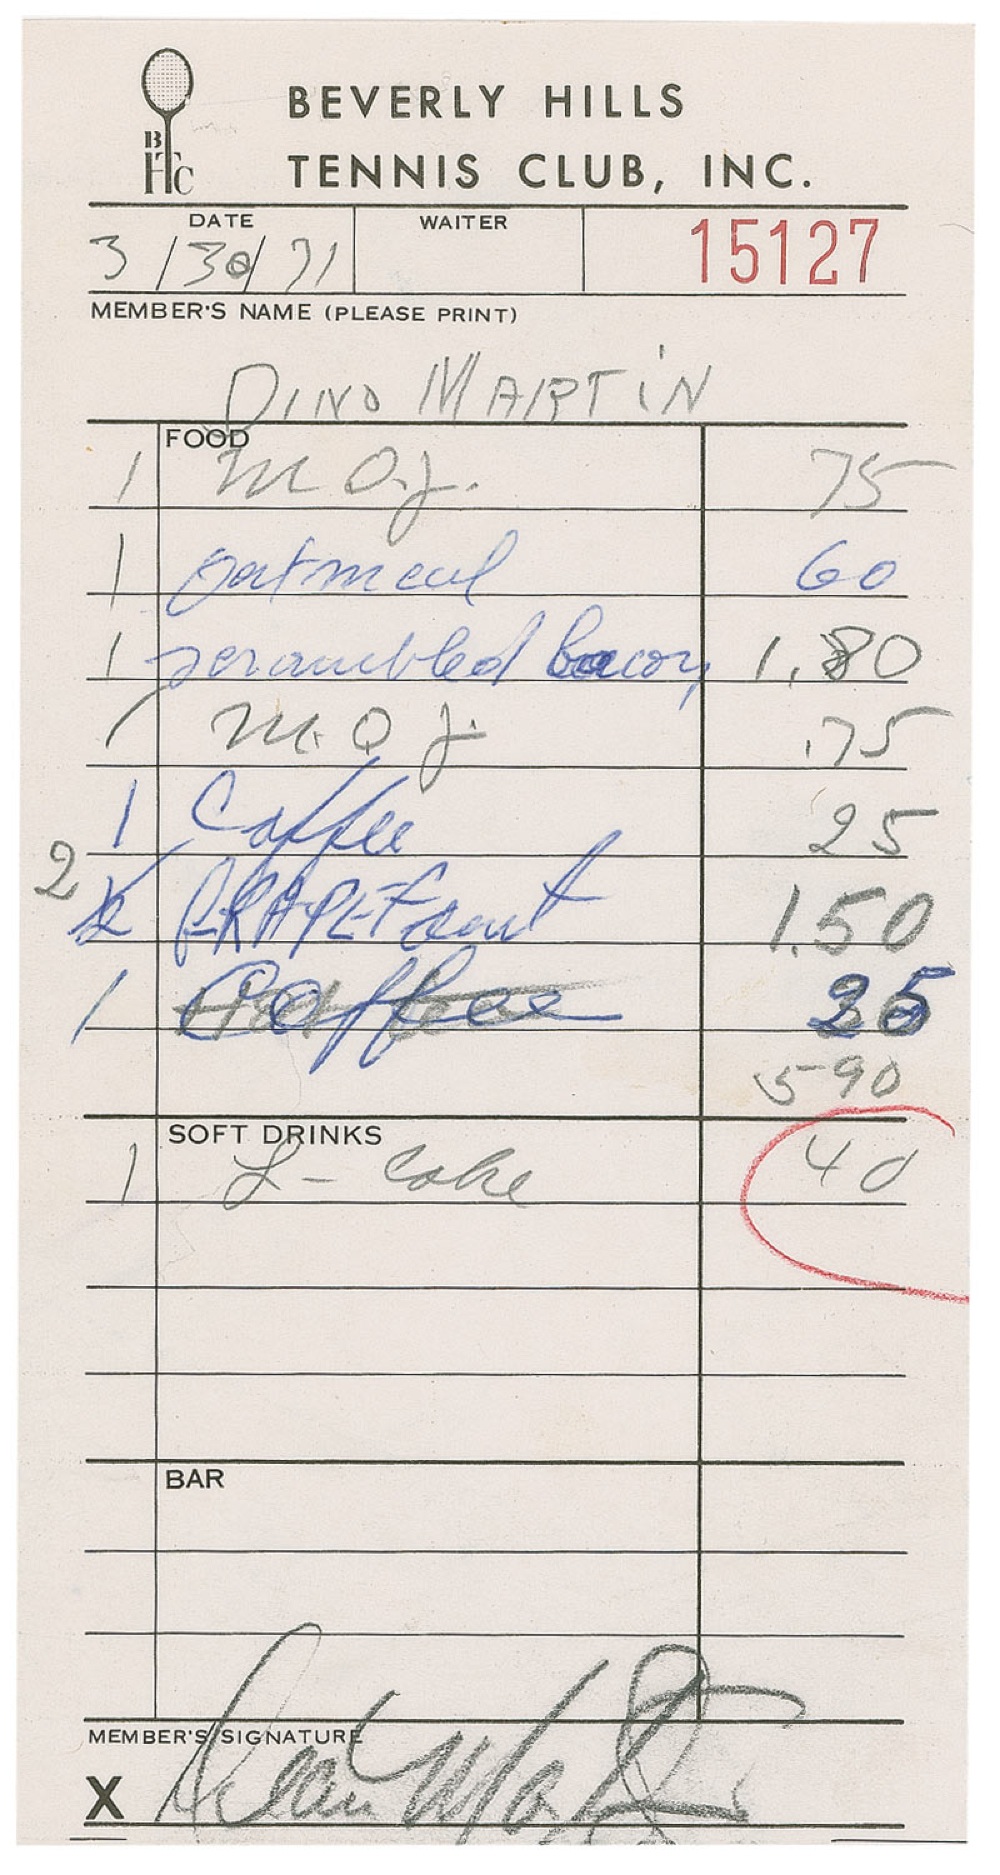 BHTC
BEVERLY HILLS
TENNIS CLUB, INC.
DATE WAITER 15127
3/30/71
MEMBER'S NAME (PLEASE PRINT)
DINO MARTIN
FOOD
1 M O.J. 75
1 oatmeal 60
1 scrambled bacon 1.80
1 M.O J. .75
1 Coffee 25
2 GRAPEFruit 1.50
1 Coffee 25
590
SOFT DRINKS
1 L - Coke 40
BAR
MEMBER'S SIGNATURE
X Dean Martin